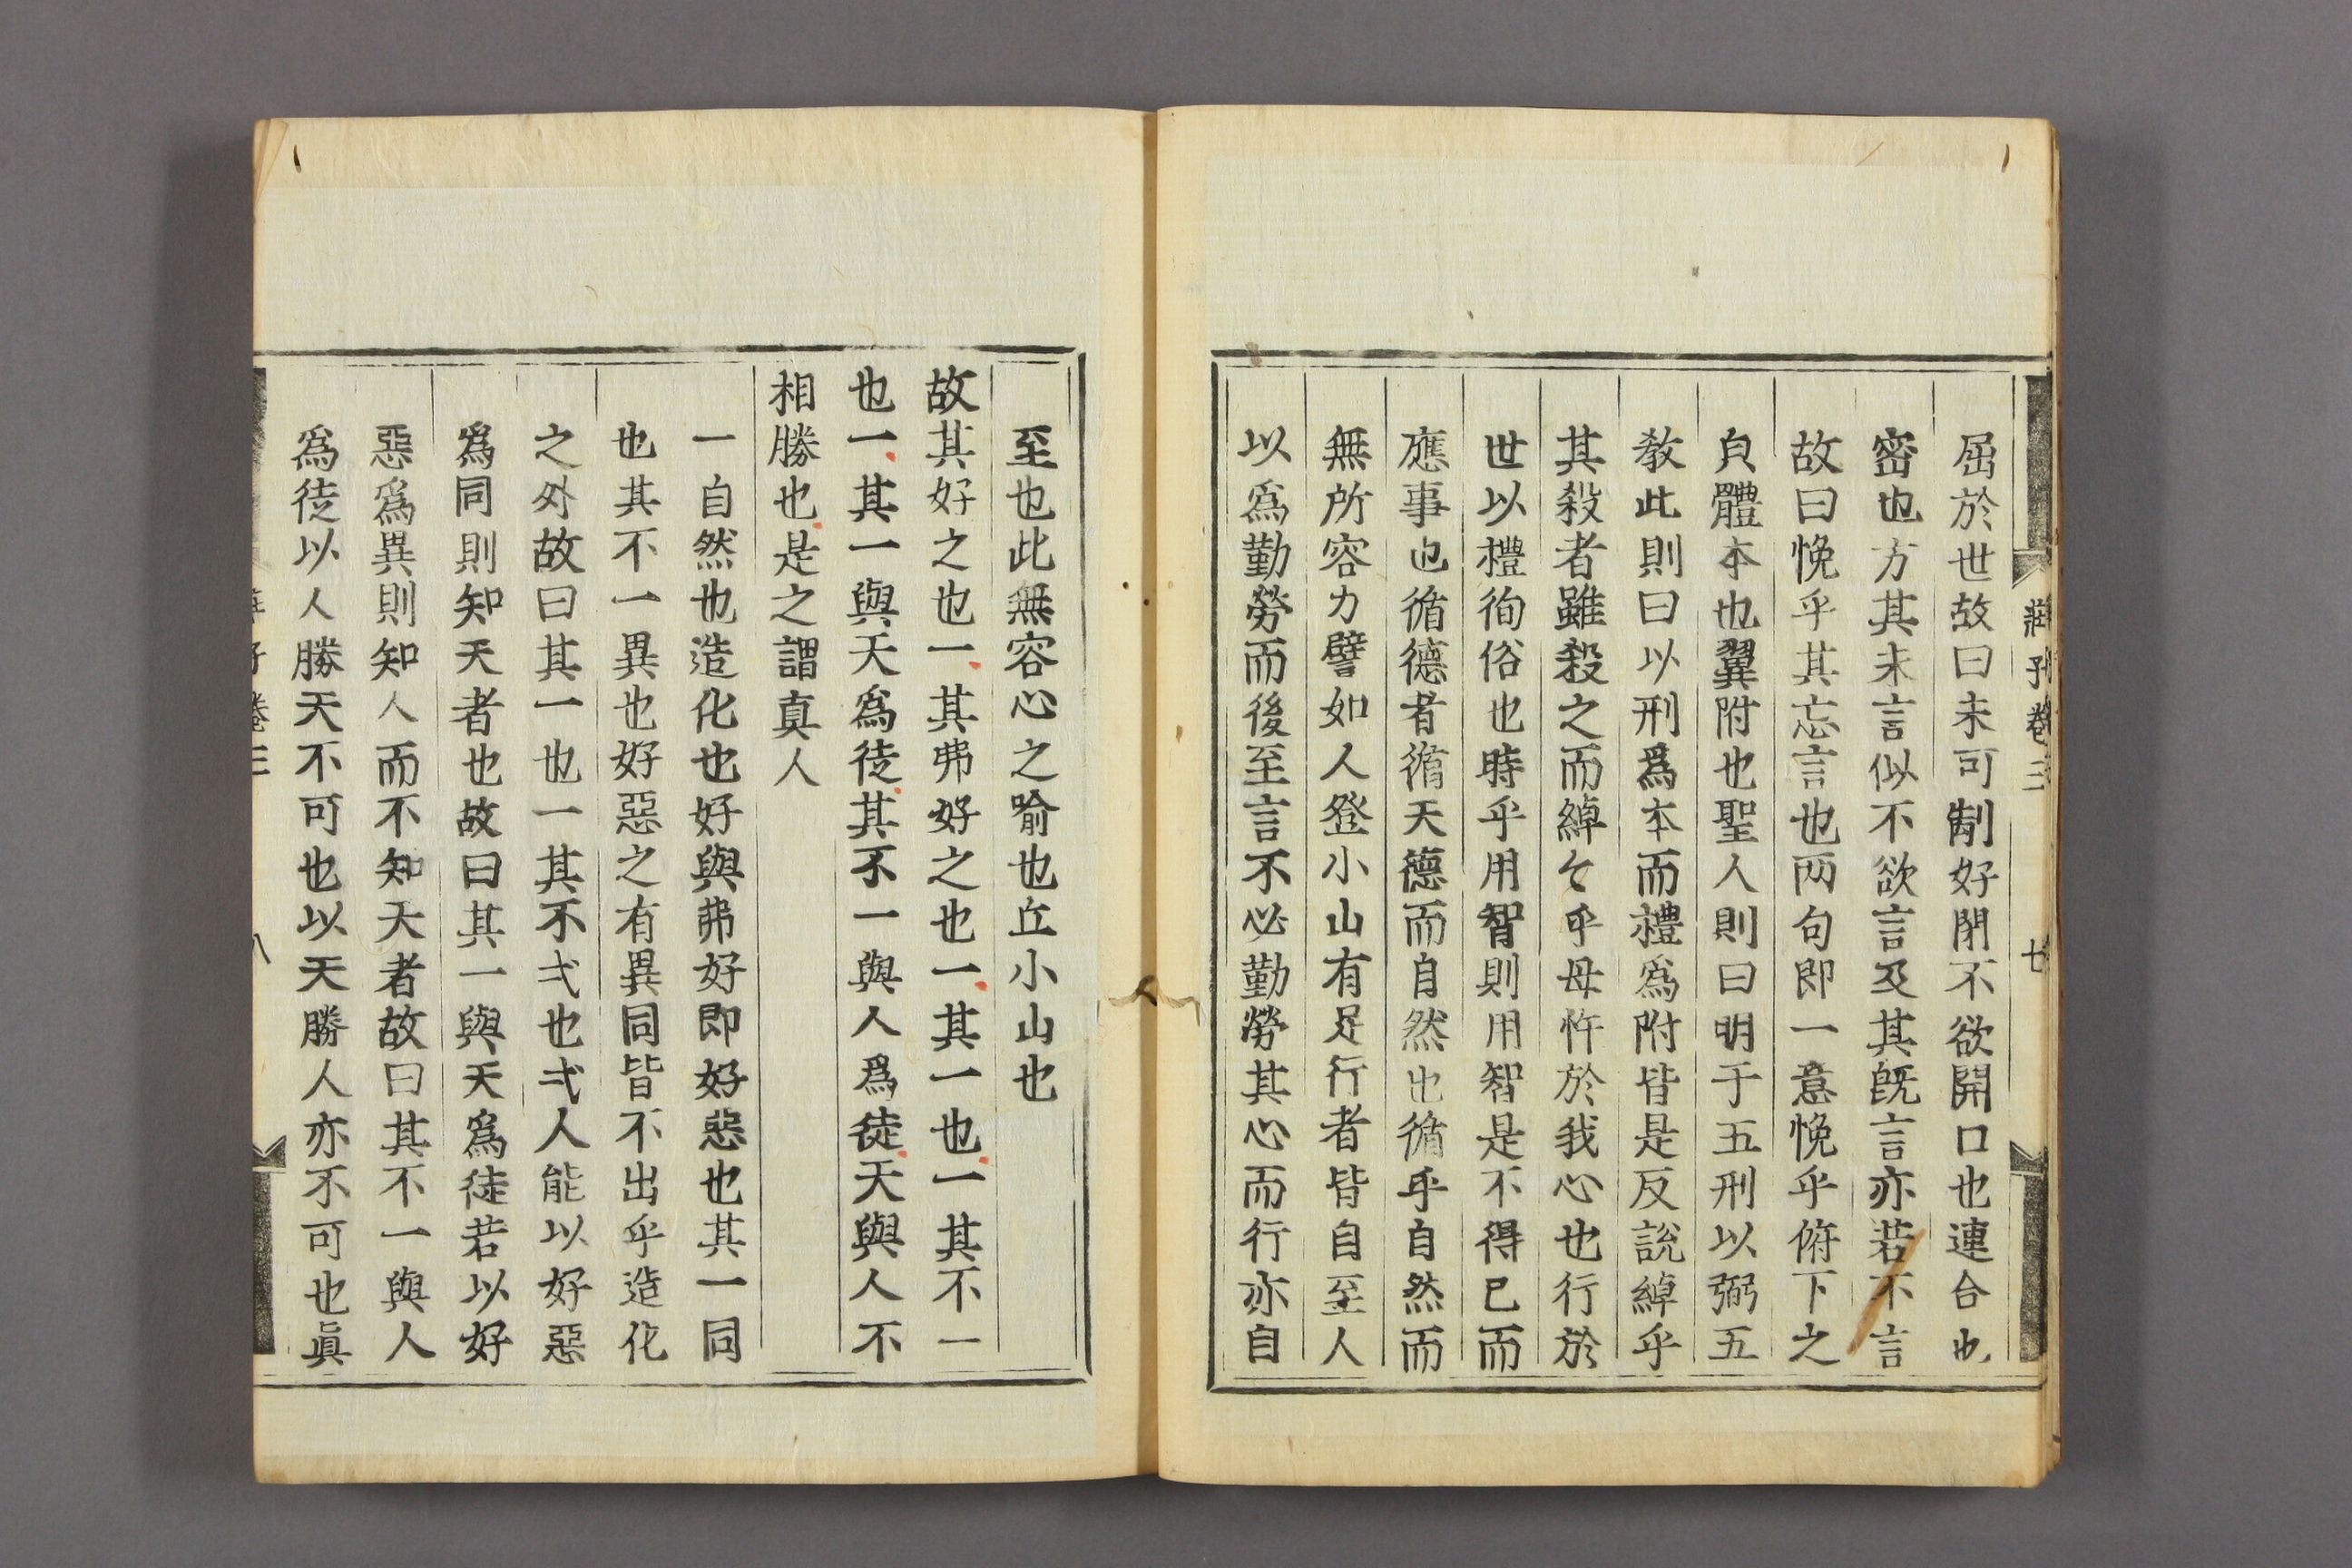 莊子卷三 七
屈於世故曰未可制好閉不欲開口也連合也
密也方其未言似不欲言及其旣言亦若不言
故曰悗乎其忘言也两句即一意悗乎俯下之
皃體本也翼附也聖人則曰明于五刑以弼五
教此則曰以刑爲本而禮爲附皆是反說綽乎
其殺者雖殺之而綽々乎毋忤於我心也行於
世以禮徇俗也時乎用智則用智是不得已而
應事也循德者循天德而自然也循乎自然而
無所容力譬如人登小山有足行者皆自至人
以爲勤勞而後至言不必勤勞其心而行亦自
至也此無容心之喻也丘小山也
故其好之也一其弗好之也一其一也一其不一
也一其一與天爲徒其不一與人爲徒天與人不
相勝也是之謂真人
一自然也造化也好與弗好即好惡也其一同
也其不一異也好惡之有異同皆不出乎造化
之外故曰其一也一其不弌也弌人能以好惡
爲同則知天者也故曰其一與天爲徒若以好
惡爲異則知人而不知天者故曰其不一與人
爲徒以人勝天不可也以天勝人亦不可也眞
子卷三 八